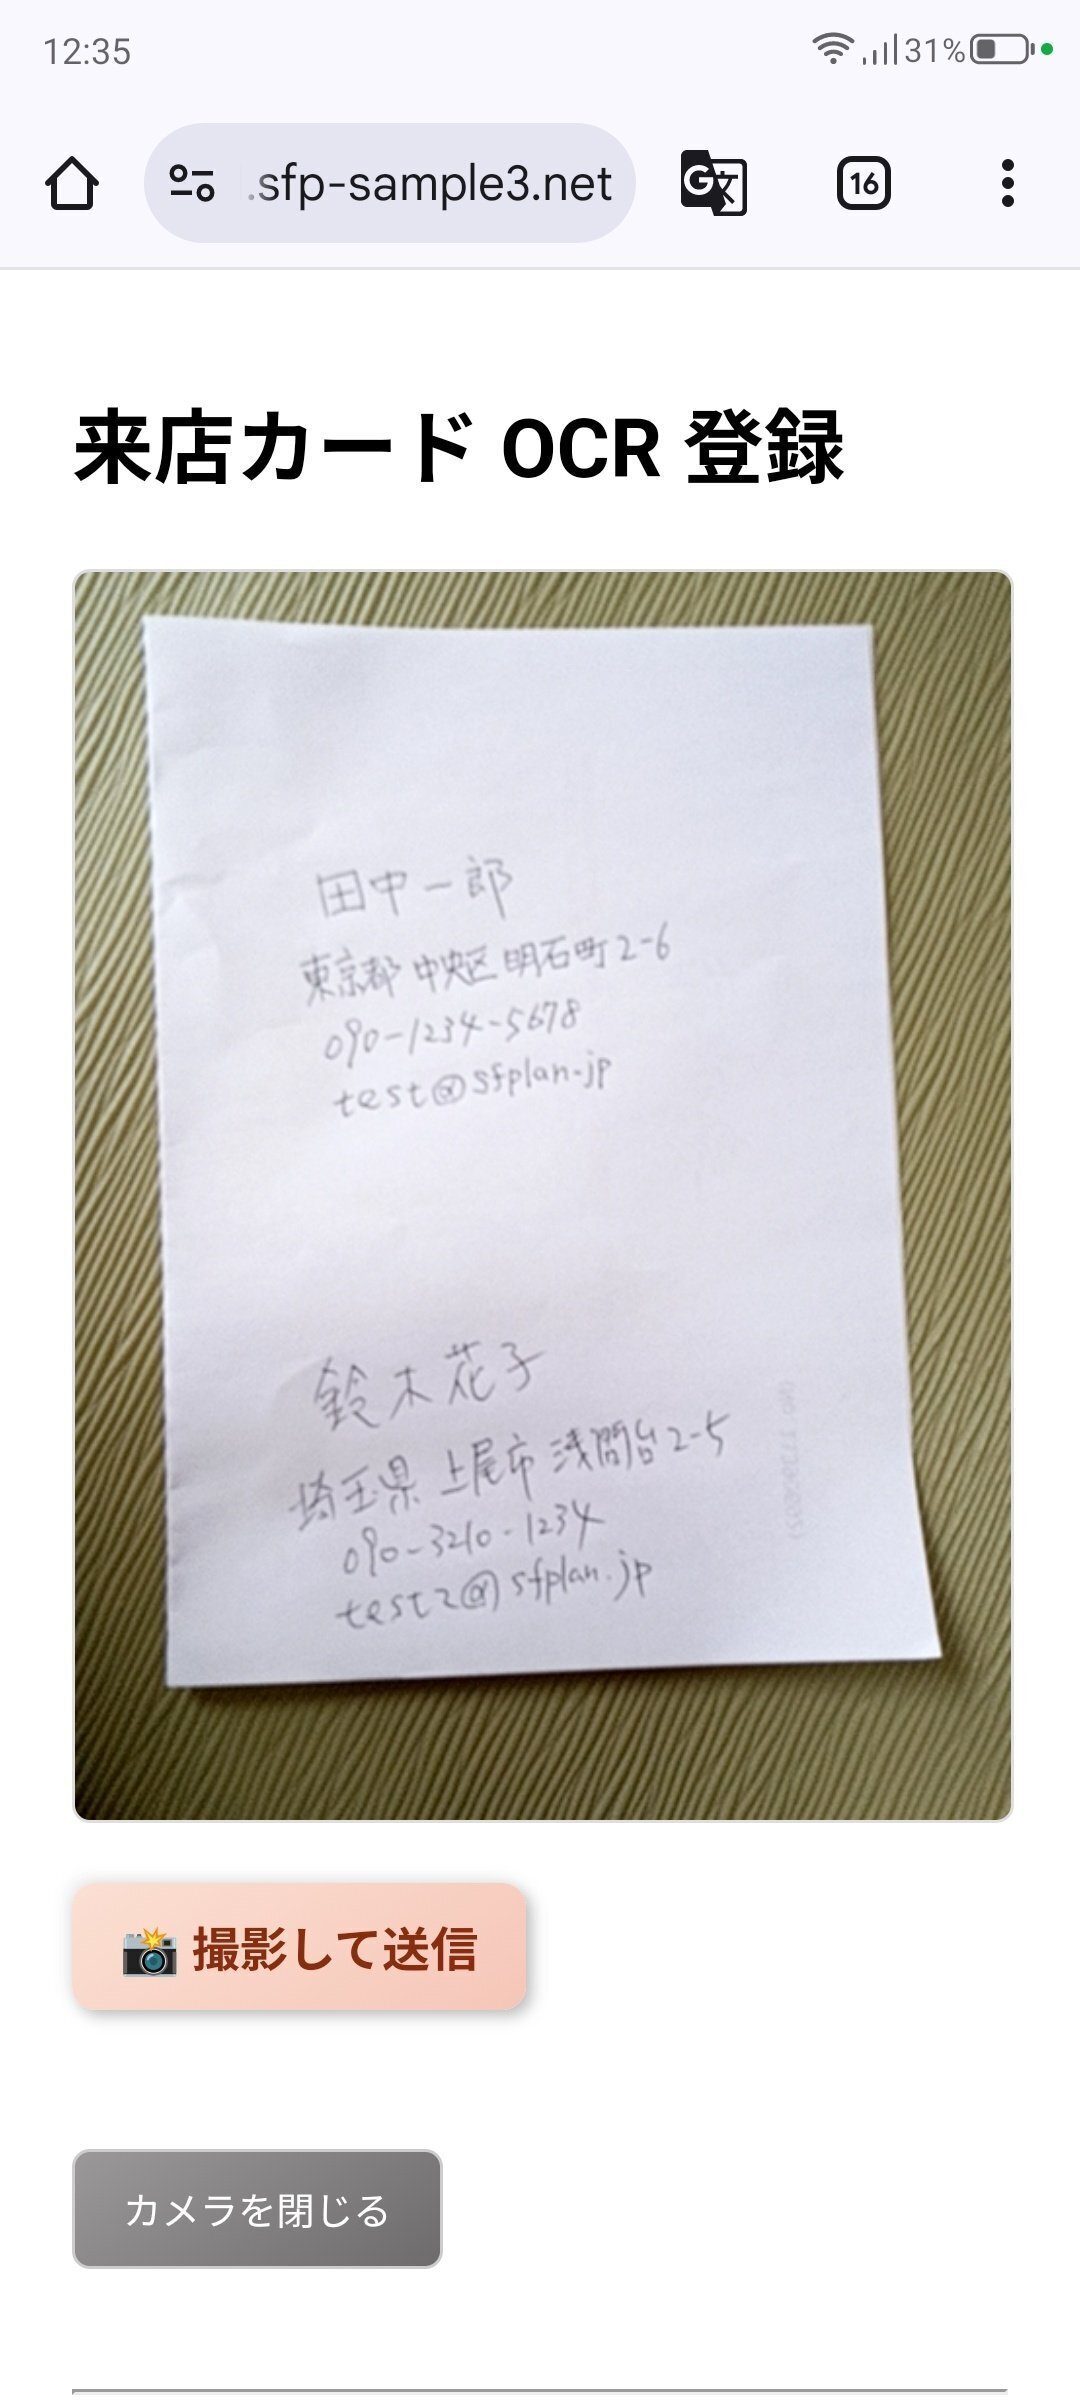 12:35
31%
.sfp-sample3.net
16
来店カード OCR 登録
田中一郎
東京都中央区明石町2-6
090-1234-5678
test@sfplan.jp
鈴木花子
埼玉県上尾市浅間台2-5
090-3210-1234
test2@sfplan.jp
📸 撮影して送信
カメラを閉じる